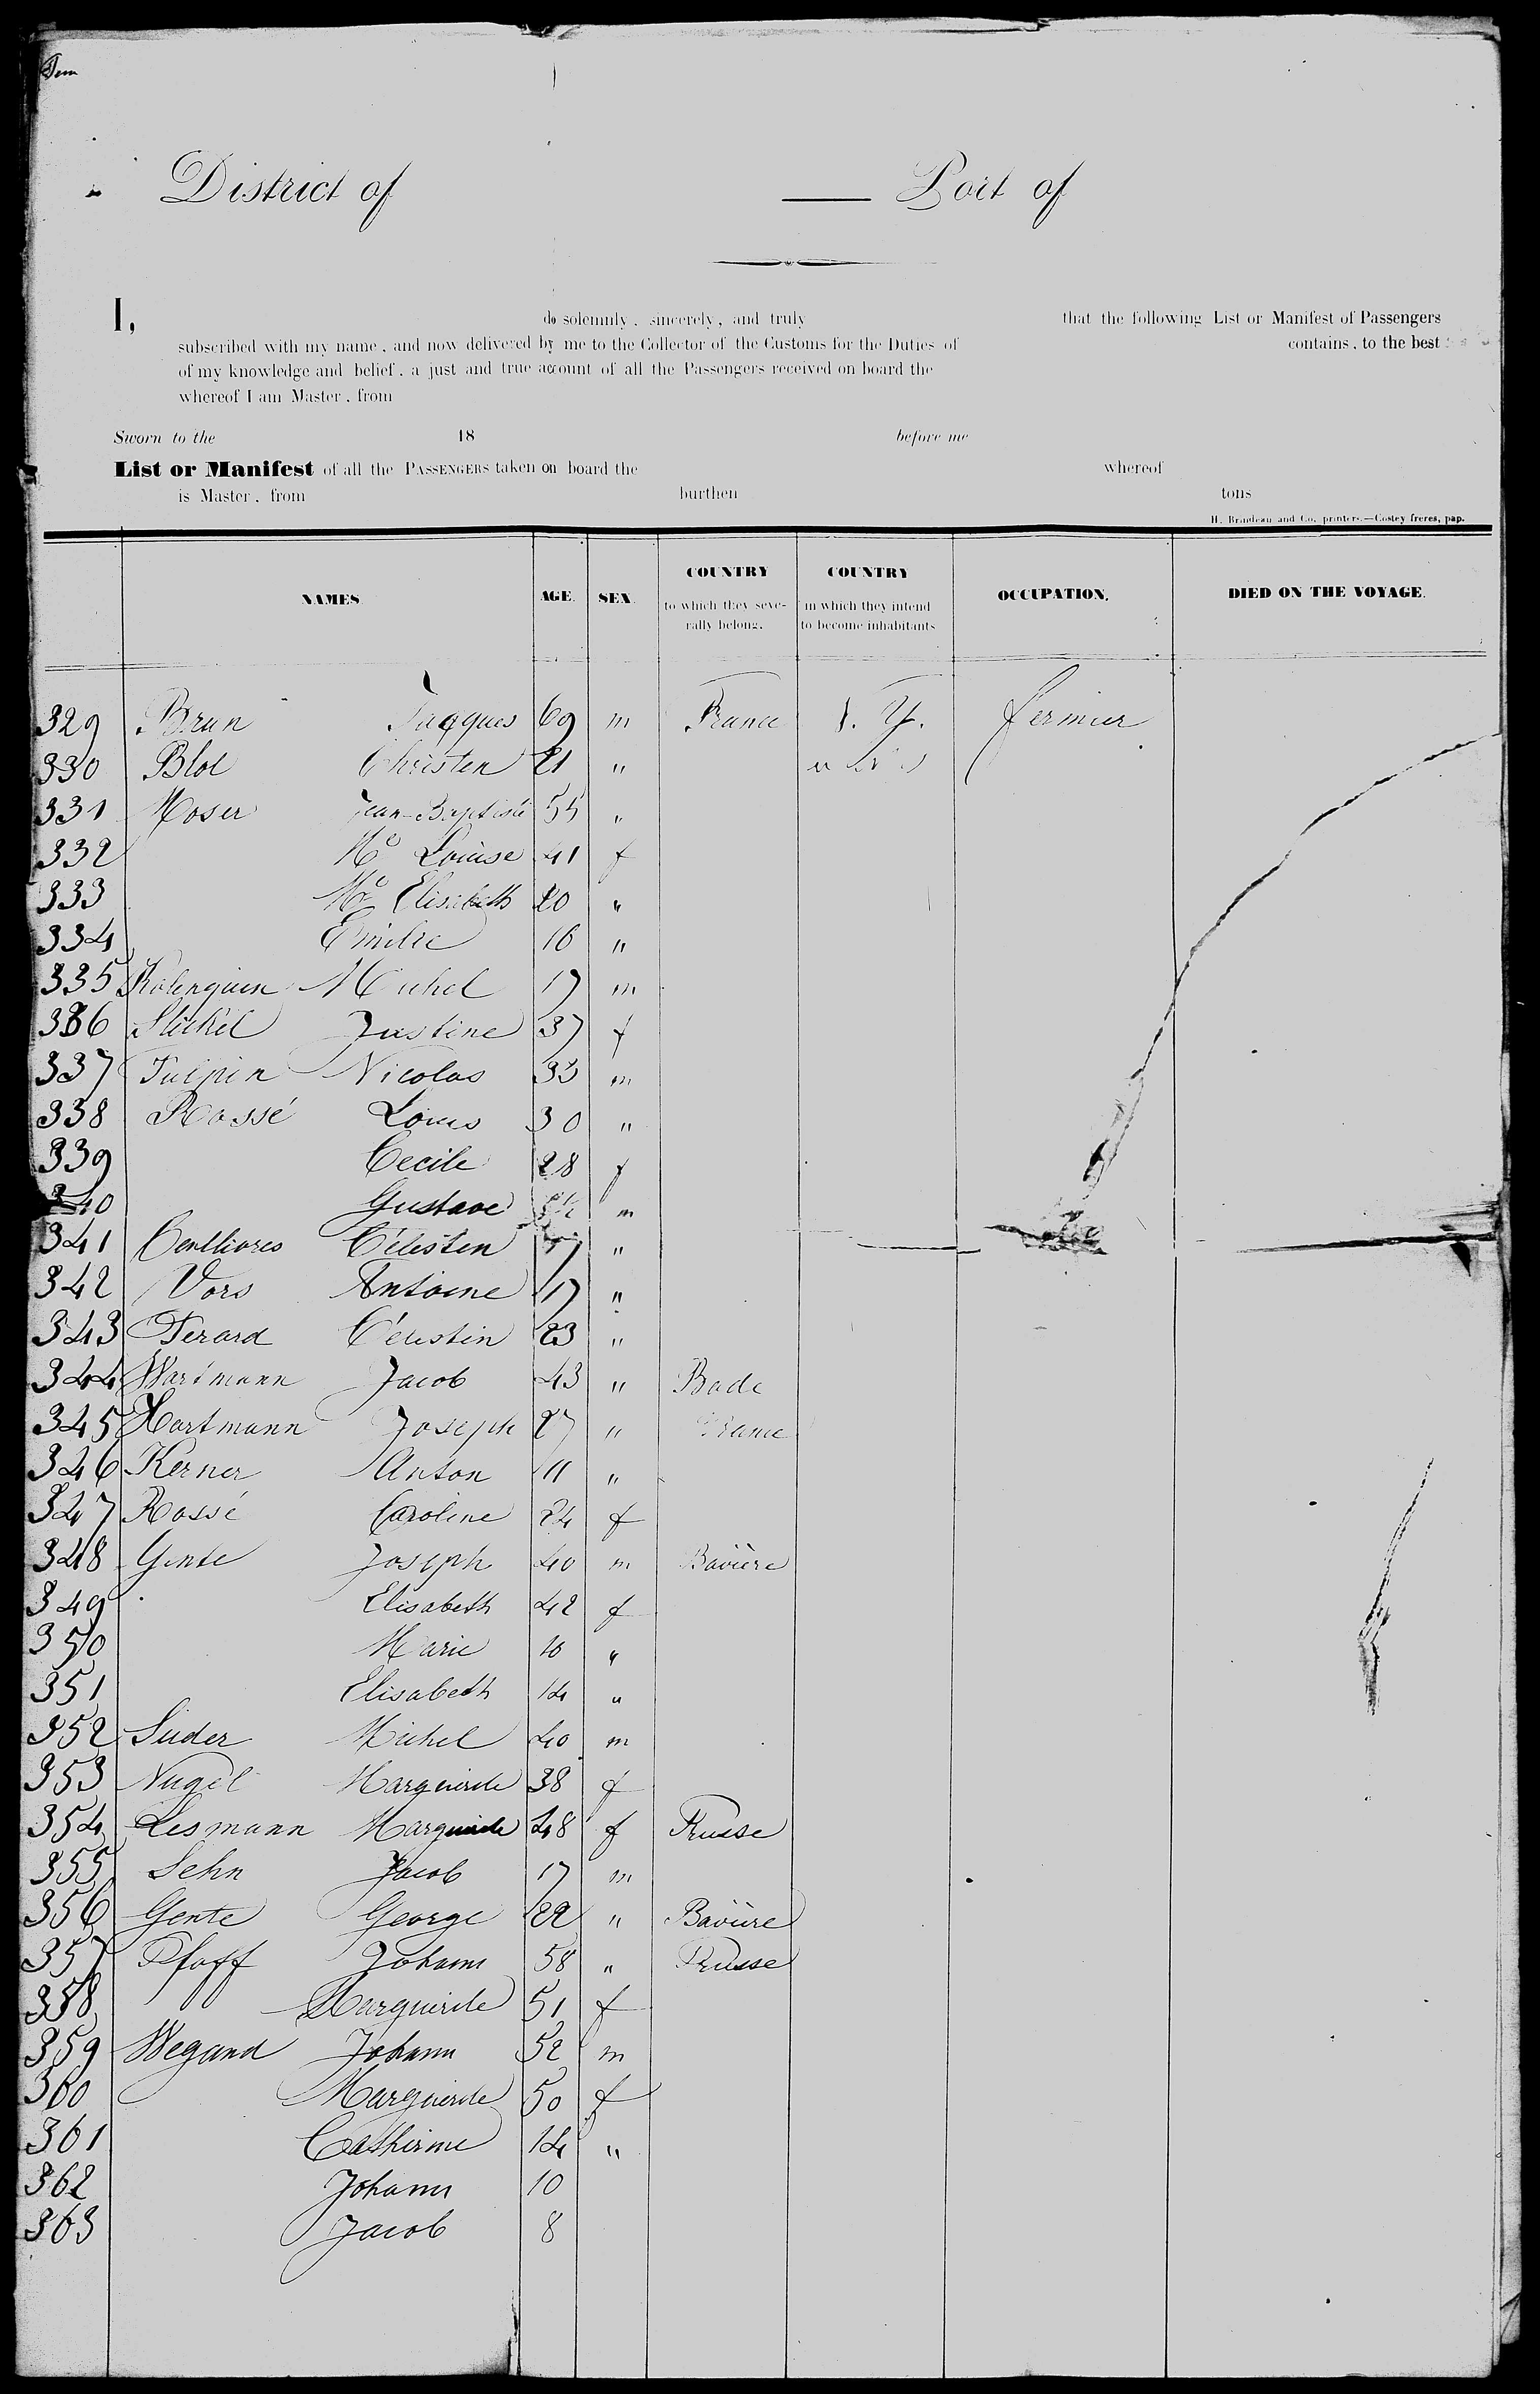 District of — Port of
I, do solemnly, sincerely, and truly that the following List or Manifest of Passengers
subscribed with my name, and now delivered by me to the Collector of the Customs for the Duties of contains, to the best
of my knowledge and belief, a just and true account of all the Passengers received on board the
whereof I am Master, from
Sworn to the 18 before me
List or Manifest of all the PASSENGERS taken on board the whereof
is Master, from burthen tons
H. Brandeau and Co, printers.—Costey freres, pap.
NAMES. AGE. SEX. COUNTRY to which they seve-rally belong. COUNTRY in which they intend to become inhabitants OCCUPATION. DIED ON THE VOYAGE.
329 Brun Jacques 69 m France N. Y. fermier
330 Blot Christen 21 "
331 Moser Jean-Baptiste 55 "
332 Me Louise 41 f
333 Me Elisabeth 20 "
334 Emilie 16 "
335 Michel 17 m
336 Stickel Justine 37 f
337 Tulpin Nicolas 33 m
338 Rossé Louis 30 "
339 Cecile 28 f
340 Gustave m
341 Célestin "
342 Vors Antoine 17 "
343 Ferard Célestin 23 "
344 Wartmann Jacob 43 " Bade
345 Hartmann Joseph 27 " France
346 Kerner Anton 11 "
347 Rossé Caroline 24 f
348 Gente Joseph 40 m Bavière
349 Elisabeth 42 f
350 Marie 16 "
351 Elisabeth 14 "
352 Suder Michel 40 m
353 Nugel Marguerite 38 f
354 Lesmann Marguerite 48 f Prusse
355 Sehn Jacob 17 m
356 Gente George 22 " Bavière
357 Pfaff Johann 58 " Prusse
358 Marguerite 51 f
359 Wegand Johann 52 m
360 Marguerite 50 f
361 Catherine 14 "
362 Johann 10
363 Jacob 8